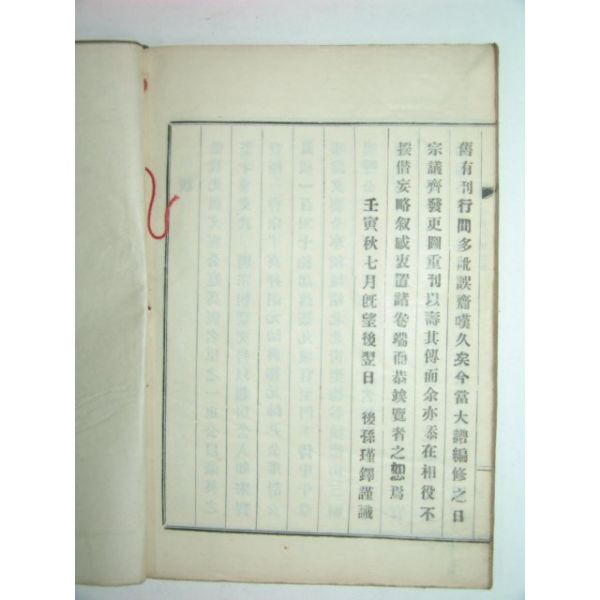 舊有刊行間多訛誤齎嘆久矣今當大譜編修之日
宗議齊發更圖重刊以壽其傳而余亦忝在相役不
揆僭妄略叙感衷置諸卷端而恭竢覽者之恕焉
壬寅秋七月旣望後翌日　後孫瑾鐸謹識